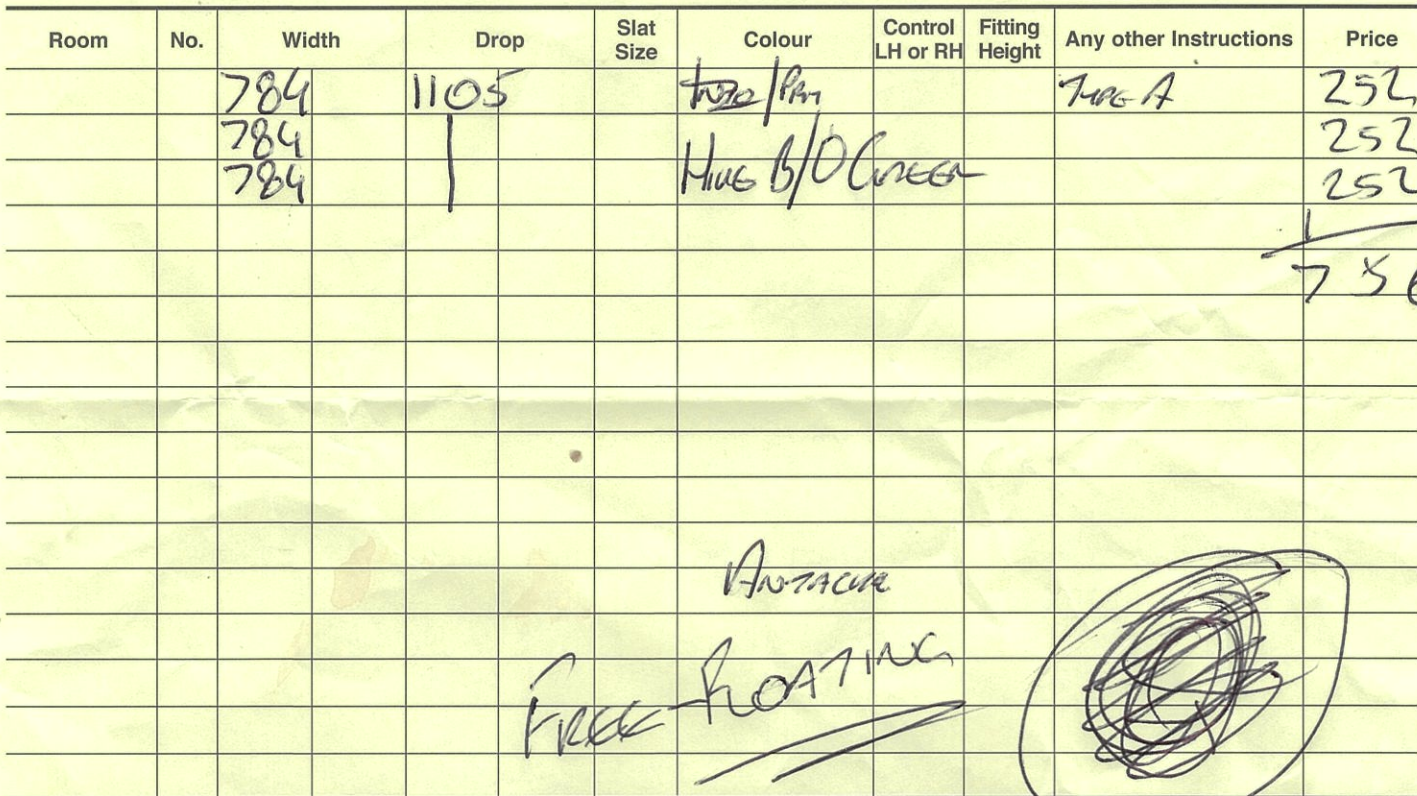 Room No. Width Drop Slat Size Colour Control LH or RH Fitting Height Any other Instructions Price
784 1105 /PRM TYPE A 252
784 252
784 HIVE B/O GREEN 252
756
FREE-FLOATING